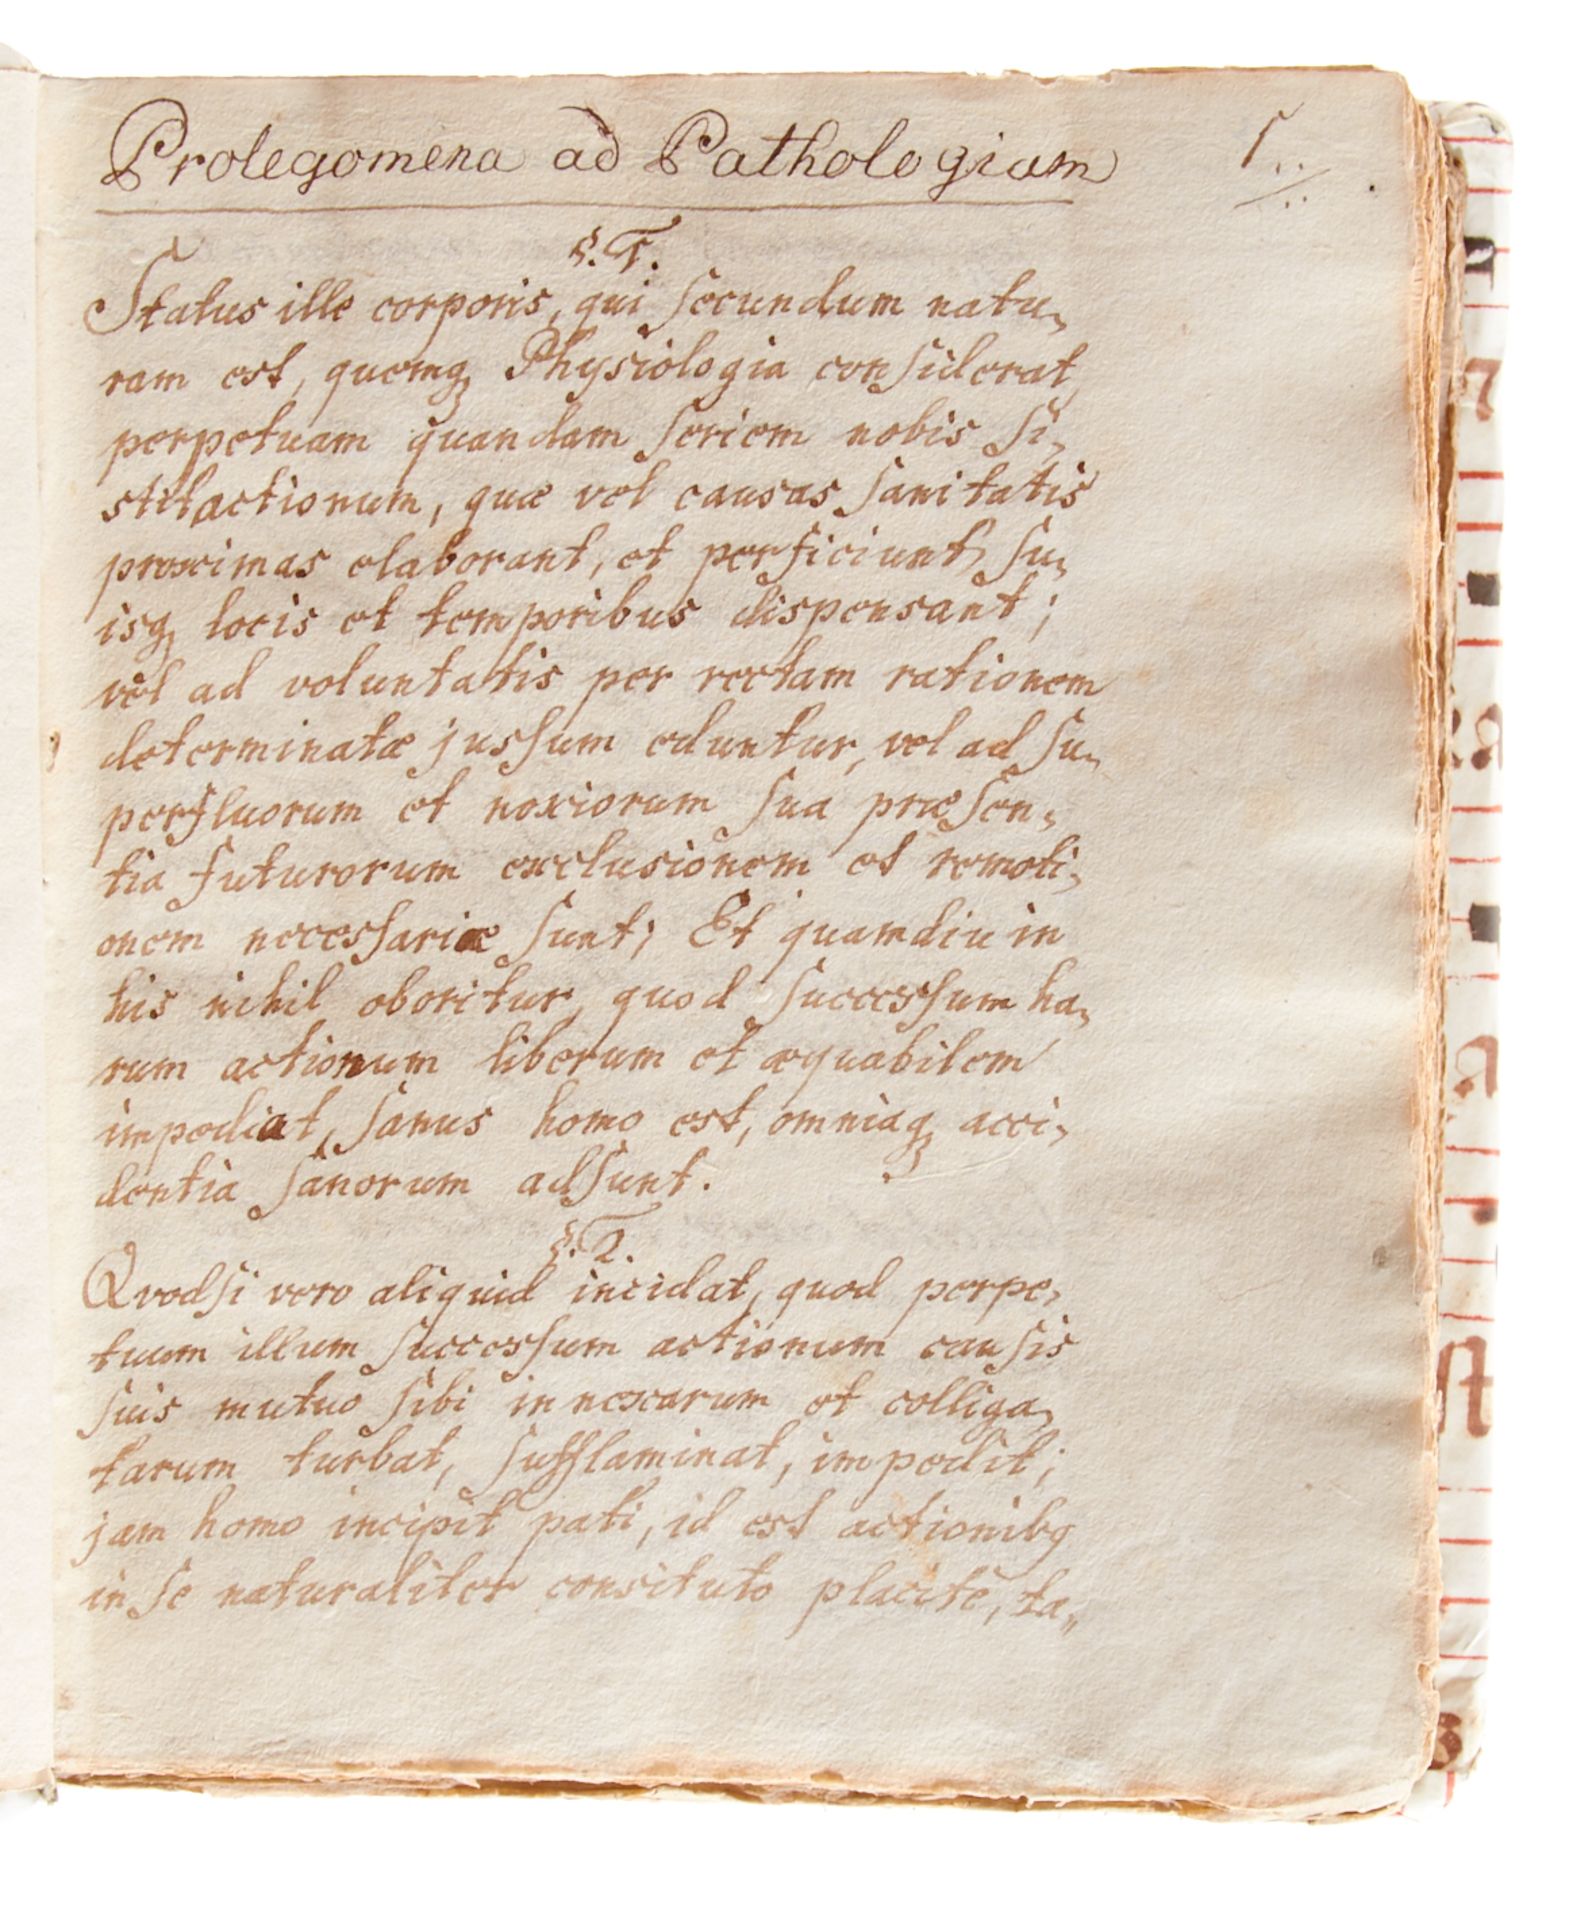 Prolegomena ad Pathologiam
1
§. 1.
Status ille corporis, qui secundum natu-
ram est, quemq; Physiologia considerat
perpetuam quandam seriem nobis si-
stit actionum, quæ vel causas sanitatis
proximas elaborant, et perficiunt, su-
isq; locis et temporibus dispensant;
vel ad voluntatis per rectam rationem
determinatæ jussum eduntur, vel ad su-
perfluorum et noxiorum sua præsen-
tia futurorum exclusionem et remoti-
onem necessariæ sunt; Et quamdiu in
his nihil oboritur, quod successum ha-
rum actionum liberum et æquabilem
impediat, sanus homo est, omniaq; acci-
dentia sanorum adsunt.
§. 2.
Qvodsi vero aliquid incidat, quod perpe-
tuum illum successum actionum causis
suis mutuo sibi innexarum et colliga-
tarum turbat, sufflaminat, impedit;
jam homo incipit pati, id est actionibq
in se naturaliter consituto placite, ta-